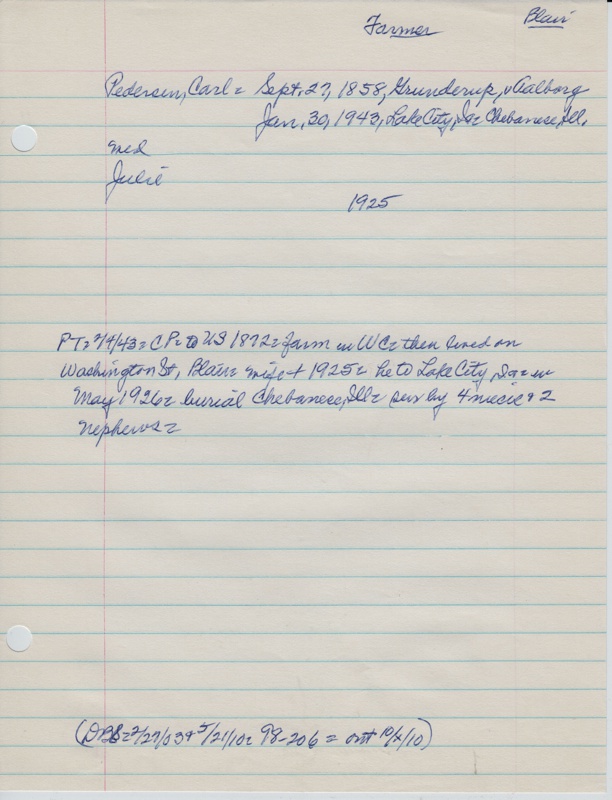 Farmer Blair
Pedersen, Carl = Sept. 27, 1858, Grunderup, v Aalborg
Jan, 30, 1943, Lake City, Ia = Chebanese, Ill.
med
Julie
1925
PT = 2/4/43 = CP = to US 1872 = farm in WC = then lived on
Washington St, Blair = wife + 1925 = he to Lake City, Ia = in
May 1926 = burial Chebanese, Ill = surv by 4 niece & 2
nephews =
(DBS = 2/27/03 & 5/21/10 = 98-206 = 10/ /10)